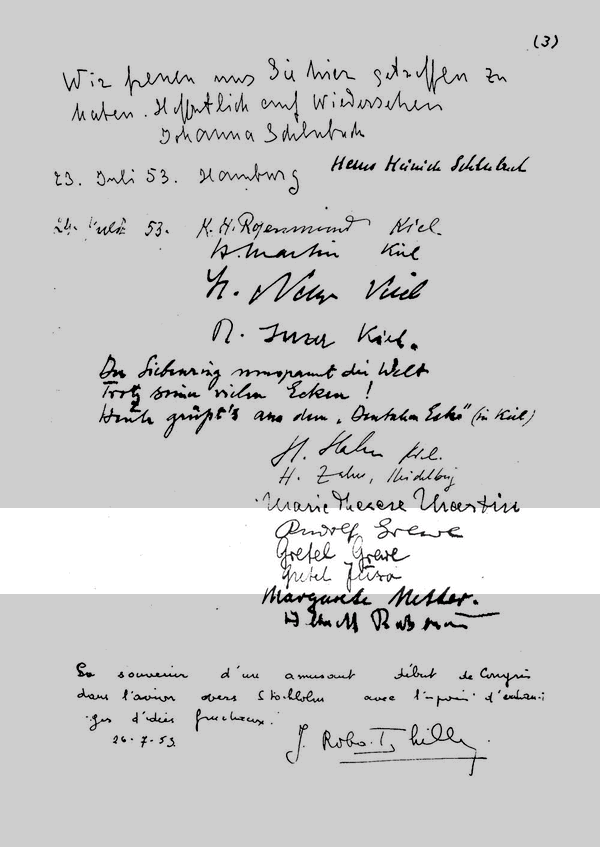 (3)
Wir freuen uns Sie hier getroffen zu
haben. Hoffentlich auf Wiedersehen
Johanna
23. Juli 53. Hamburg
Hans Heinrich
24. Juli 53. K. H. Kiel.
H. Martin Kiel
H. Kiel
R. Kiel.
Der Siebenring umspannt die Welt
Trotz seiner vielen Ecken!
Heute grüßt's aus dem „Deutschen Eck" (in Kiel)
H. Hahn Kiel.
H. Zahn, Heidelberg
Marie Therese Martin
Rudolf Grewe
Gretel Grewe
Gretel
Margarete
En souvenir d'un amusant début de Congrès
dans l'avion vers Stockholm avec l'espoir d'échan-
ges d'idées
26.7.53
J.